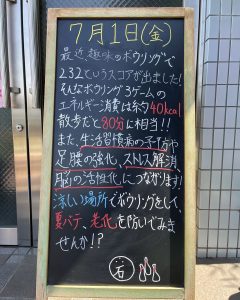 7月1日(金)
最近、趣味のボウリングで
232というスコアが出ました!
そんなボウリング3ゲームの
エネルギー消費は約40kcal
散歩だと80分に相当!!
また、生活習慣病の予防や
足腰の強化、ストレス解消
脳の活性化、につながります!
涼しい場所でボウリングをして、
夏バテ、老化を防いでみま
せんか!?
石